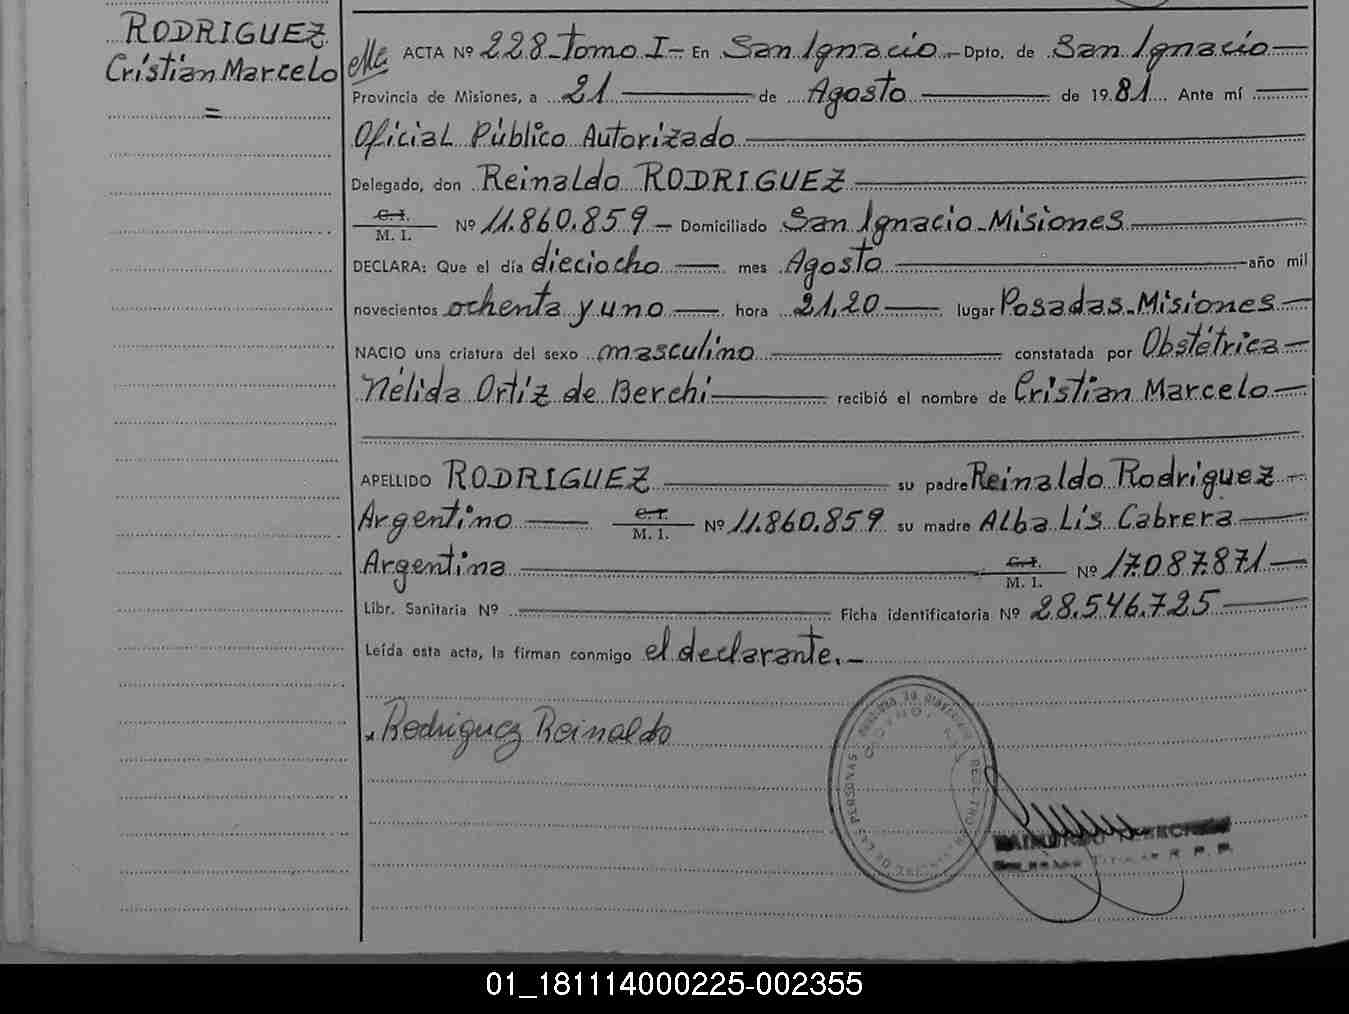 RODRIGUEZ
Cristian Marcelo
=
ACTA Nº 228 - Tomo I - En San Ignacio - Dpto. de San Ignacio
Provincia de Misiones, a 21 de Agosto de 1981 Ante mí
Oficial Público Autorizado
Delegado, don Reinaldo RODRIGUEZ
C.I. / M. I. Nº 11.860.859 - Domiciliado San Ignacio - Misiones
DECLARA: Que el día dieciocho mes Agosto año mil
novecientos ochenta y uno hora 21,20 lugar Posadas - Misiones
NACIO una criatura del sexo masculino constatada por Obstétrica
Nélida Ortiz de Berchi recibió el nombre de Cristian Marcelo
APELLIDO RODRIGUEZ su padre Reinaldo Rodriguez
Argentino C.I. / M. I. Nº 11.860.859 su madre Alba Lis Cabrera
Argentina C.I. / M. I. Nº 17.087.871
Libr. Sanitaria Nº Ficha identificatoria Nº 28.546.725
Leída esta acta, la firman conmigo el declarante.
Rodriguez Reinaldo
DE LAS PERSONAS
01_181114000225-002355